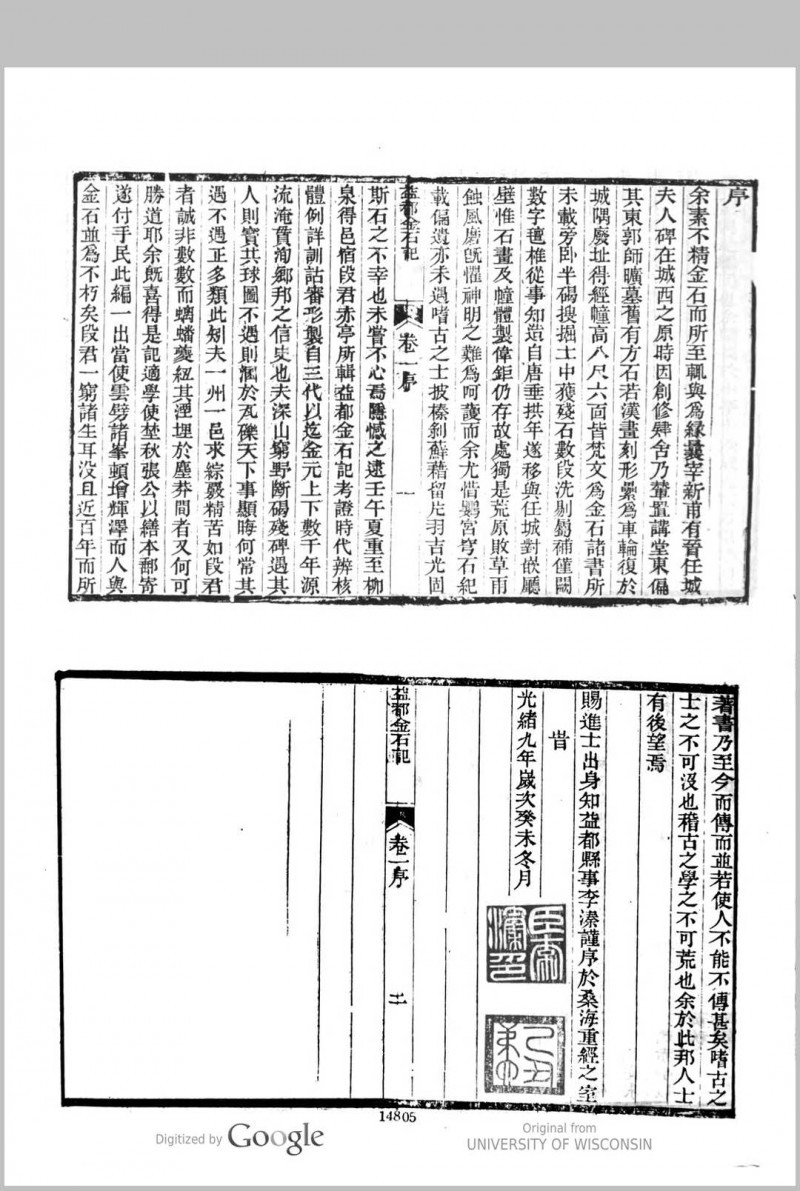 序
余素不精金石而所至輒與爲緣曩宰新甫有晉任城
夫人碑在城西之原時因創修肄舍乃輦置講堂東偏
其東郭師曠墓舊有方石若漢畫刻形纍爲車輪復於
城隅廢址得經幢高八尺六面皆梵文爲金石諸書所
未載旁卧半碣搜掘土中獲殘石數段洗剔蜀補僅闕
數字氊椎從事知造自唐垂拱年遂移與任城對嵌廳
壁惟石畫及幢體製偉鉅仍存故處獨是荒原敗草雨
蝕風磨旣懼神明之難爲呵護而余尤惜鸎宮穹石紀
載偏遺亦未遇嗜古之士披榛剁蘚藉留片羽吉光固
益都金石記
卷一序
一
斯石之不幸也未嘗不心焉隱憾之逮壬午夏重至柳
泉得邑宿段君赤亭所輯益都金石記考證時代辨核
體例詳訓詁審形製自三代以迄金元上下數千年源
流淹貫洵鄉邦之信史也夫深山窮野斷碣殘碑遇其
人則寳共球圖不遇則溷於瓦礫天下事顯晦何常其
遇不遇正多類此矧夫一州一邑求綜覈精苦如段君
者誠非數數而螭蟠夔紐其湮埋於塵莽間者又何可
勝道耶余旣喜得是記適學使埜秋張公以繕本郵寄
遂付手民此編一出當使雲劈諸峯頓增輝澤而人與
金石並爲不朽矣段君一窮諸生耳没且近百年而所
著書乃至今而傳而並若使人不能不傳甚矣嗜古之
士之不可沒也稽古之學之不可荒也余於此邦人士
有後望焉
賜進士出身知益都縣事李溱謹序於桑海重經之室
旹
光緒九年歲次癸未冬月
益都金石記
卷一序
二
14805
Digitized by Google
Original from
UNIVERSITY OF WISCONSIN